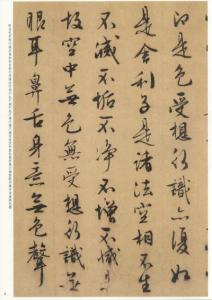 即是色受想行識亦復如
是舍利子是諸法空相不生
不滅不垢不淨不增不減是
故空中無色無受想行識無
眼耳鼻舌身意無色聲